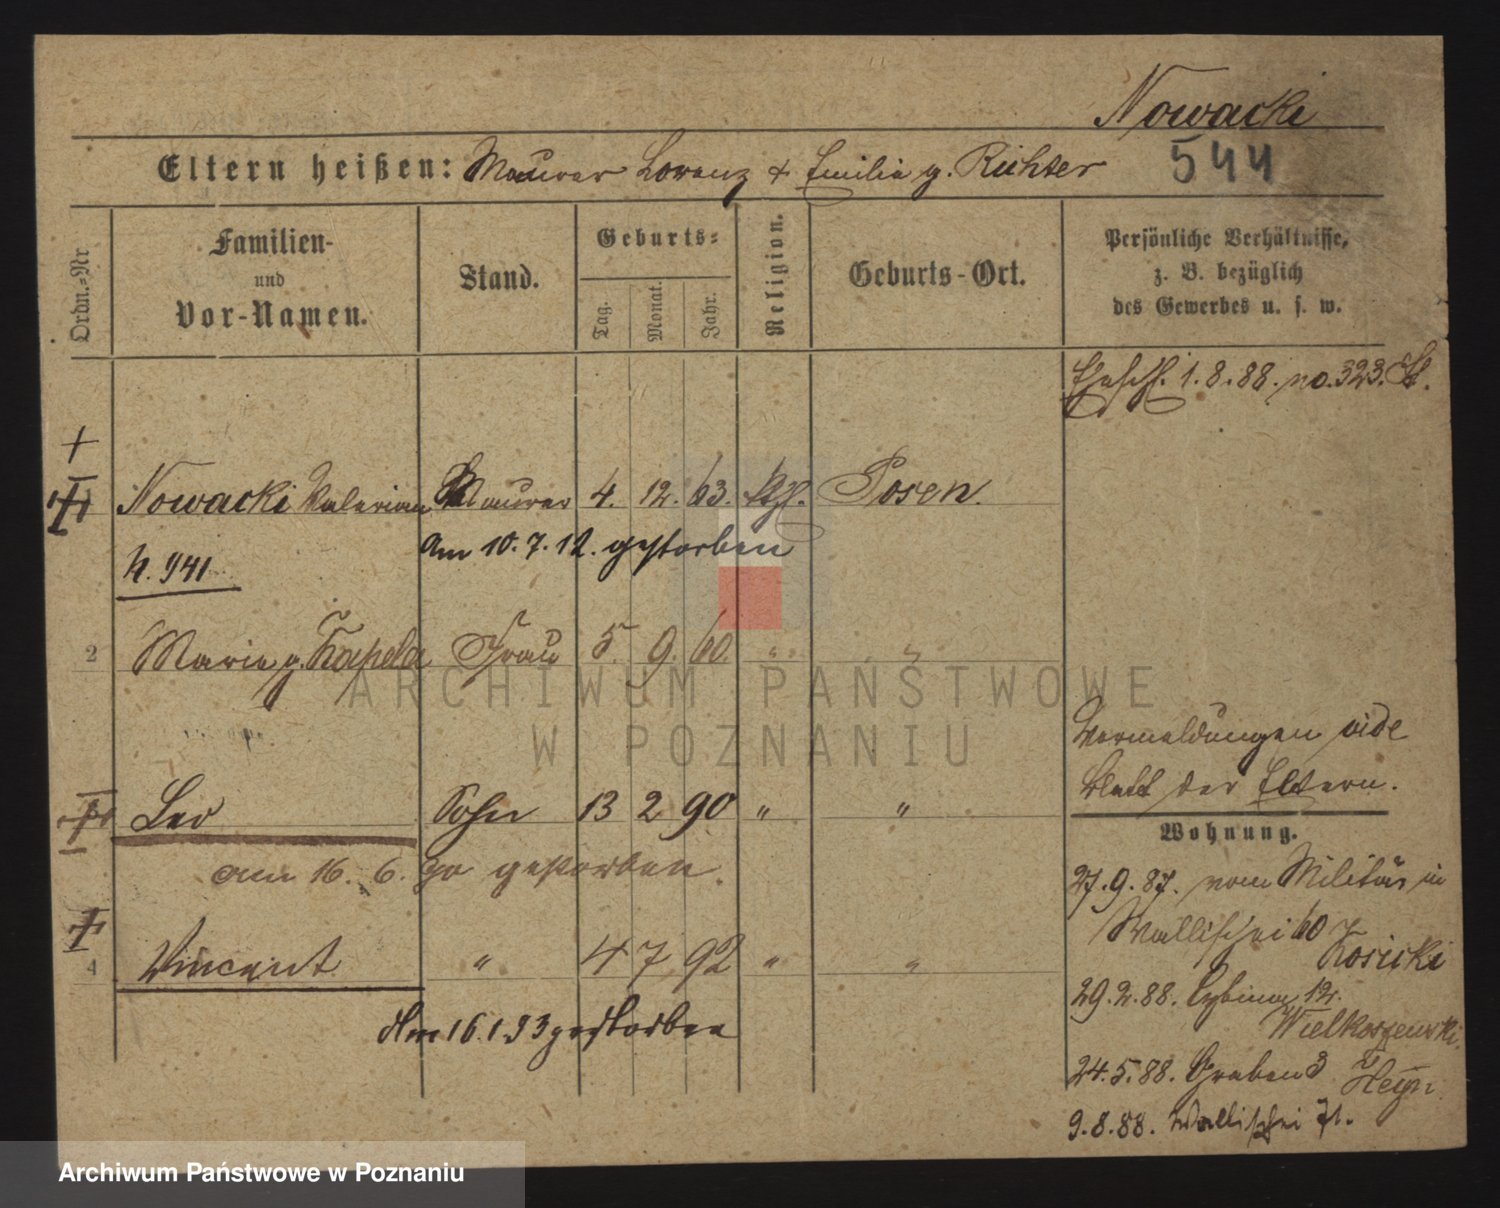 Nowacki
544
Eltern heißen: Maurer Lorenz + Emilie g. Richter
Ordn.-Nr
Familien-
und
Vor-Namen.
Stand.
Geburts-
Tag.
Monat.
Jahr.
Religion.
Geburts-Ort.
Persönliche Verhältnisse,
z. B. bezüglich
des Gewerbes u. s. w.
Ehesch. 1.8.88. no. 323.
+
Nowacki Valerian Maurer 4. 12. 63. kth. Posen.
am 10.7.12. gestorben
941
2 Marie g. Kapela Frau 5. 9. 60. " "
Vermeldungen vide
Blatt der Eltern.
Leo Sohn 13 2 90 " "
am 16. 6. 90 gestorben.
4 Vincent " 4 7 92 " "
Am 16.1.93 gestorben
Wohnung.
27.9.87. vom Militär in
Wallischei 60
Kosicki
29.2.88. Cybina 12.
Wielkoszewski.
24.5.88. Graben 3 Heyn.
9.8.88. Wallischei 71.
ARCHIWUM PAŃSTWOWE
W POZNANIU
Archiwum Państwowe w Poznaniu